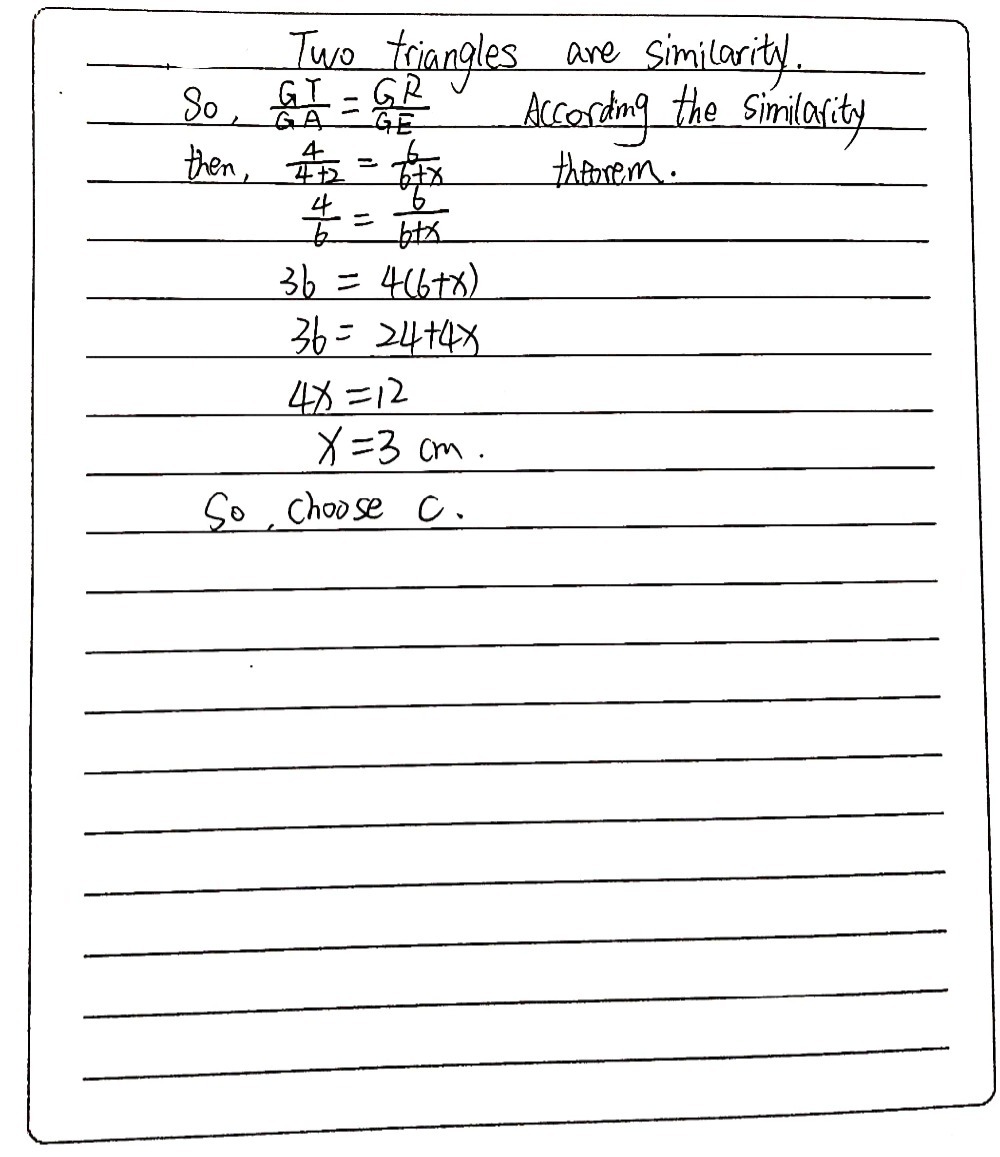 Two triangles are similarity.
So, GT/GA = GR/GE According the similarity
then, 4/4+2 = 6/6+x theorem.
4/6 = 6/6+x
36 = 4(6+x)
36 = 24+4x
4x = 12
x = 3 cm.
So, choose C.